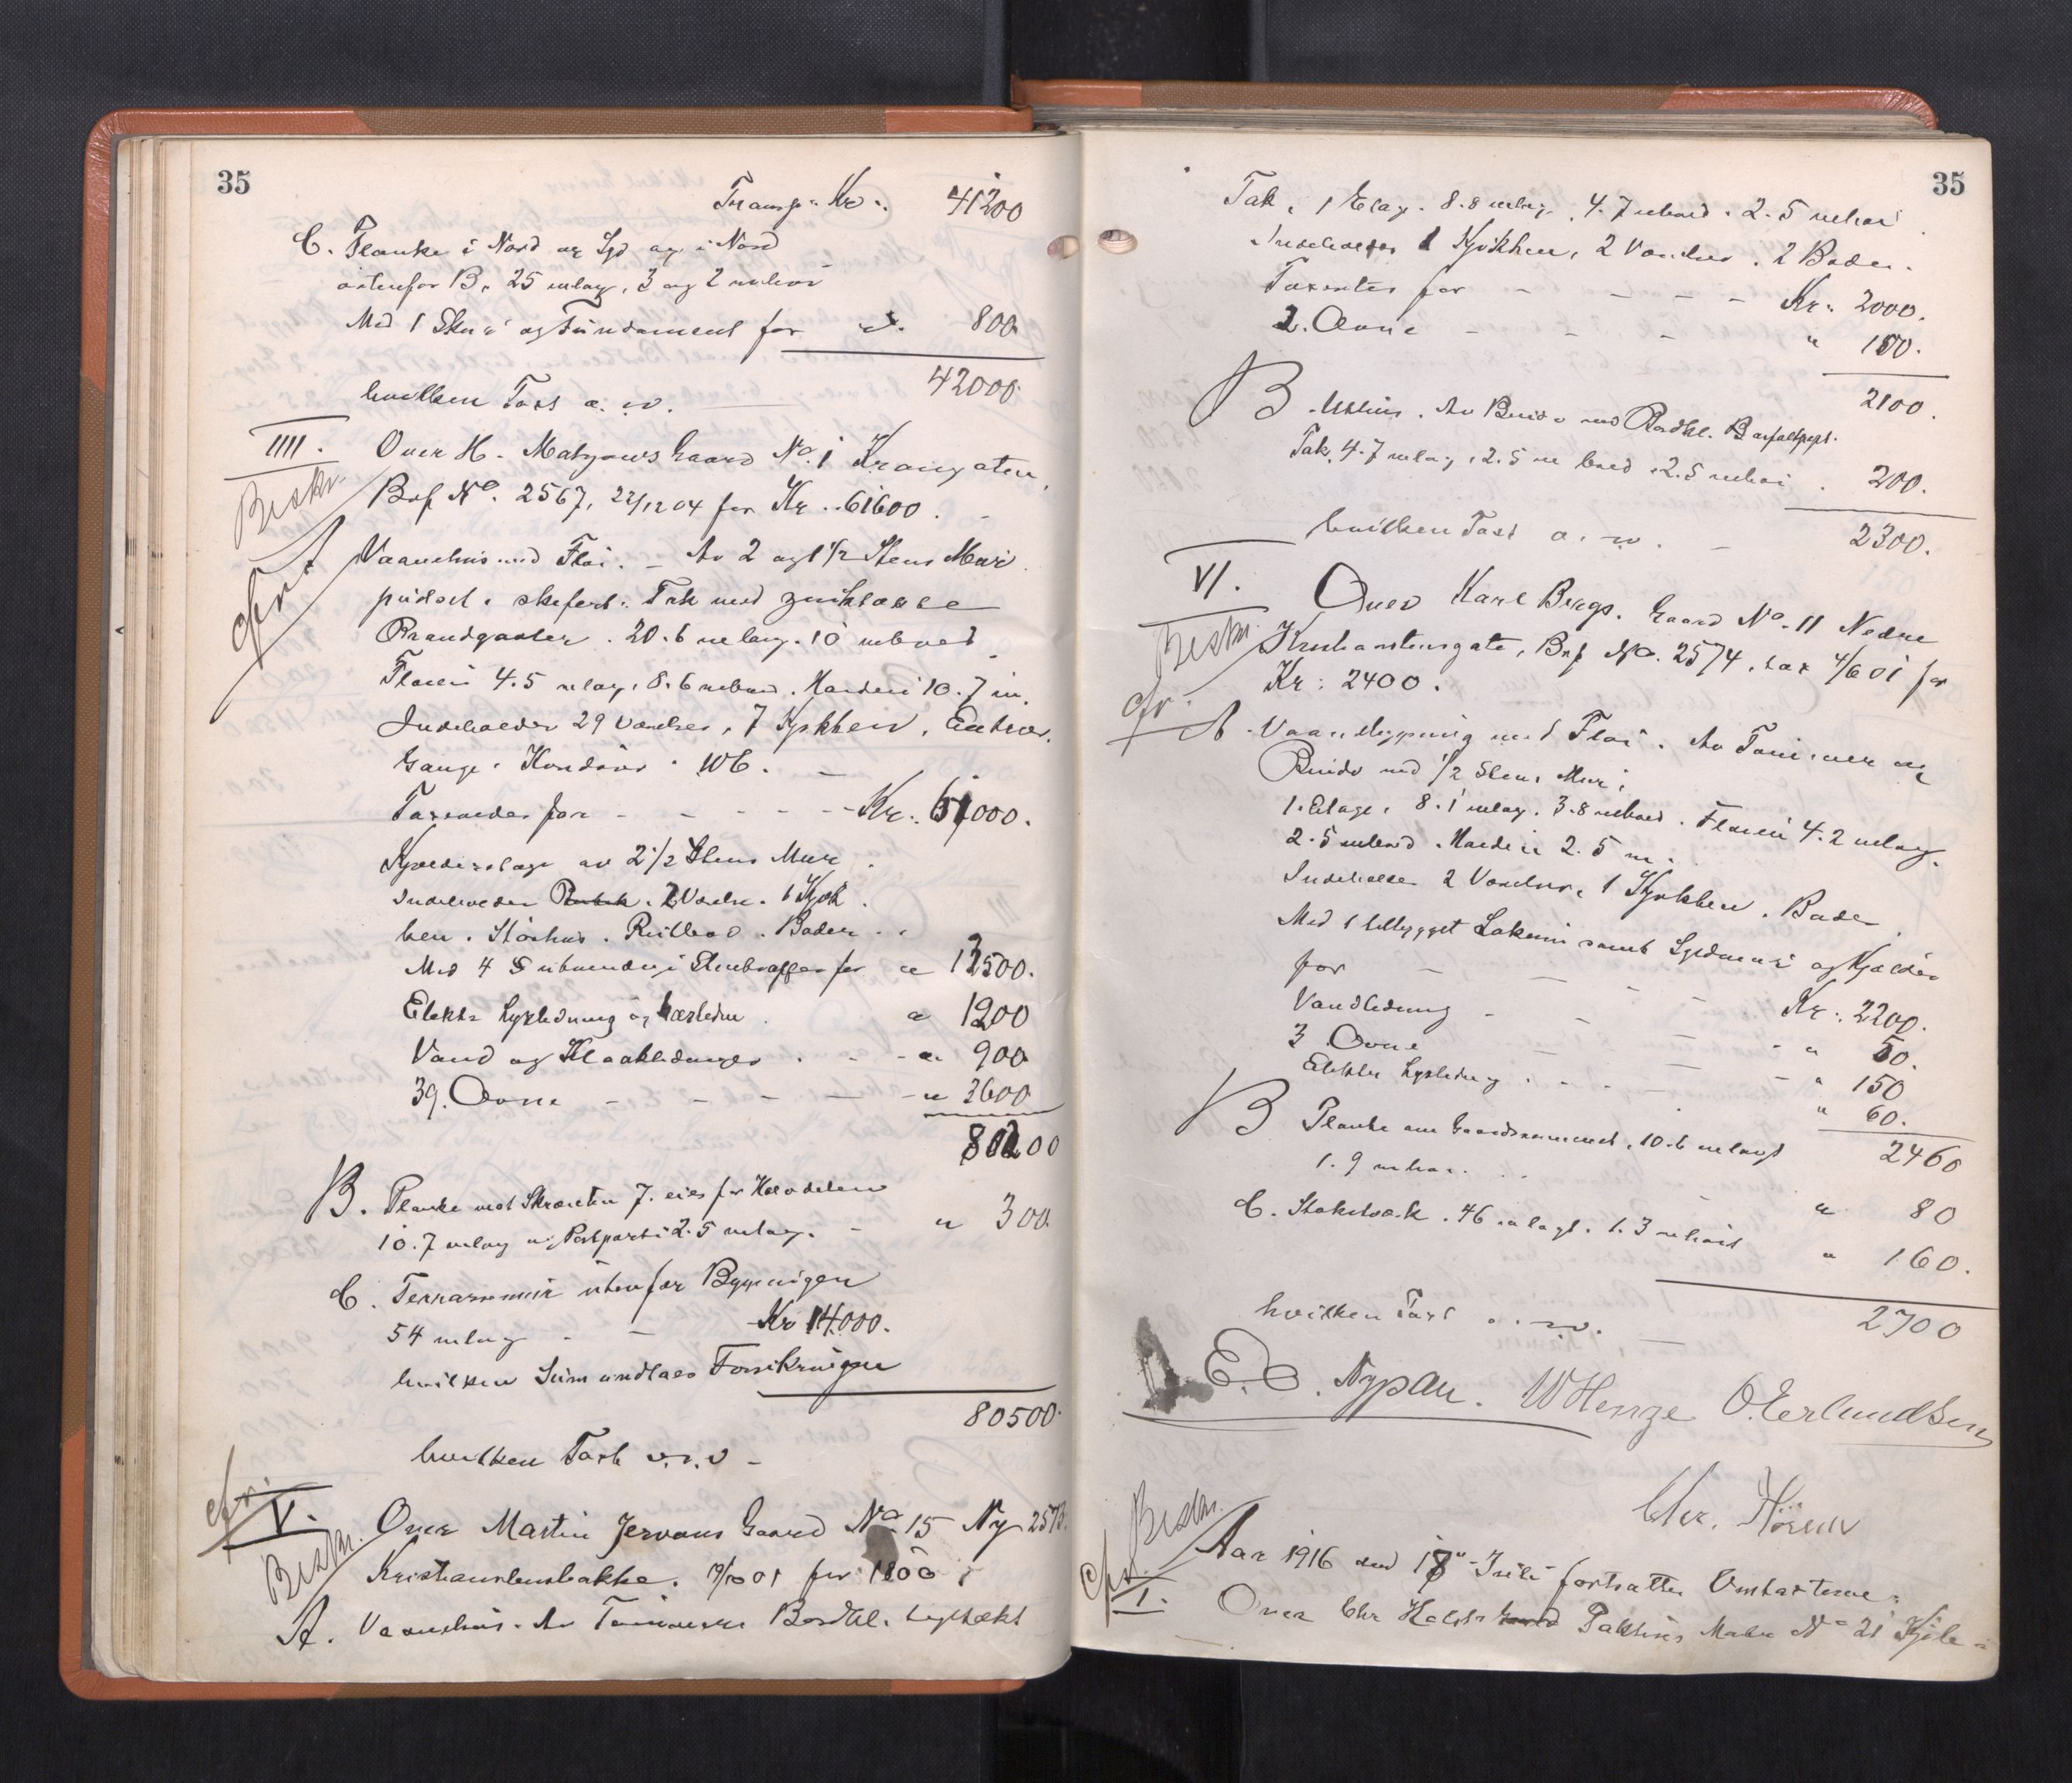 35
Transp. Kr. 41200
C. Planke i Nord og Syd og i Nord
østenfor B, 25 m lang, 3 og 2 m høi
Med 1 Skur og Fundament for " 800
42000
hvilken Taxt a. v.
IIII. Over H. Matzows Gaard No. 1 Krangaten,
Beskr.
Brf No. 2567, 22/12 04 for Kr. 61600.
cfr
A Vaanehus med Fløi. Av 2 og 1 1/2 Stens Mur
pudset, skifert Tak med zinktække
Brandgavler. 20.6 m lang. 10 m bred
Fløien 4.5 m lang, 8.6 m bred. Høiden 10.7 m.
Indeholder 29 Værelser, 7 Kjøkken, Entreer,
Gange, Korridor, WC.
Taxeredes for Kr. 61000.
Kjælderetage av 2 1/2 Stens Mur
Indeholder 2 Værelse. 1 Kjøk
ken. Rullebod. Boder.
Med 4 utvendige Stentrapper for " 13500.
Elektr Lysledning og " 1200
Vand og Kloakledninger " 900
39. Ovne " 3600
80200
B. Planke mot Skrænten 7.
10.7 m lang og Portparti 2.5 m lang. " 300
C. Terrassemur utenfor Bygningen
54 m lang Kr 14.000.
hvilken Sum undtaes Forsikringen
80500
hvilken Taxt a. v.
cfr
V. Over Martin Jervans Gaard No 15 Ny 2573.
Beskr.
Kristianstensbakke. for 1800
A. Vaanehus. Av Tømmer Bordkl. tegltækt
35
Tak, 1 Etag. 8.8 m lang, 4.7 m bred. 2.5 m høi
Indeholder 1 Kjøkken, 2 Værelser. 2 Boder.
Taxertes for Kr. 2000.
2. Ovne " 100.
2100.
B. Uthus. Av Bindv. med Bordkl. asfaltpapt.
Tak, 4.7 m lang, 2.5 m bred, 2.5 m høi. 200.
hvilken Taxt a. v. 2300.
VI. Over Karl Bergs. Gaard No. 11 Nedre
Beskr.
Kristianstensgate, Brf No. 2574, tax 4/6 01 for
Kr: 2400.
cfr.
A. Vaanebygning med Fløi. Av Tømmer og
Bindv med 1/2 Stens Mur,
1. Etage, 8.1 m lang. 3.8 m bred. Fløien 4.2 m lang.
2.5 m bred. Høiden 2.5 m.
Indeholder 2 Værelser, 1 Kjøkken. Boder
Med 1 tilbygget Lokum samt Sydmur og Kjælder
for Kr: 2200.
Vandledning " 50.
3 Ovne " 150
Elektr Lysledning " 60.
2460
B Planke om Gaardsrummet, 10.6 m langt
1.9 m høi " 80
C. Stakitværk. 46 m langt. 1.3 m høit " 160.
hvilken Taxt a. v. 2700
E. O. Nypan. W Henze O. Erlandsen
Chr. Hörem
Beskr.
Aar 1916 den 18 Juli fortsattes Omtaxterne:
cfr.
I. Over Chr Holsts Pakhus Matr No 21 Kjøb-